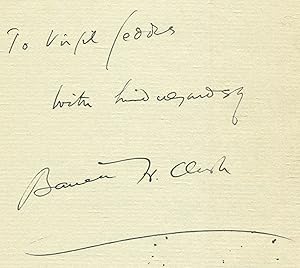 To Virgil Geddes
with kind regards of
Barrett H. Clark